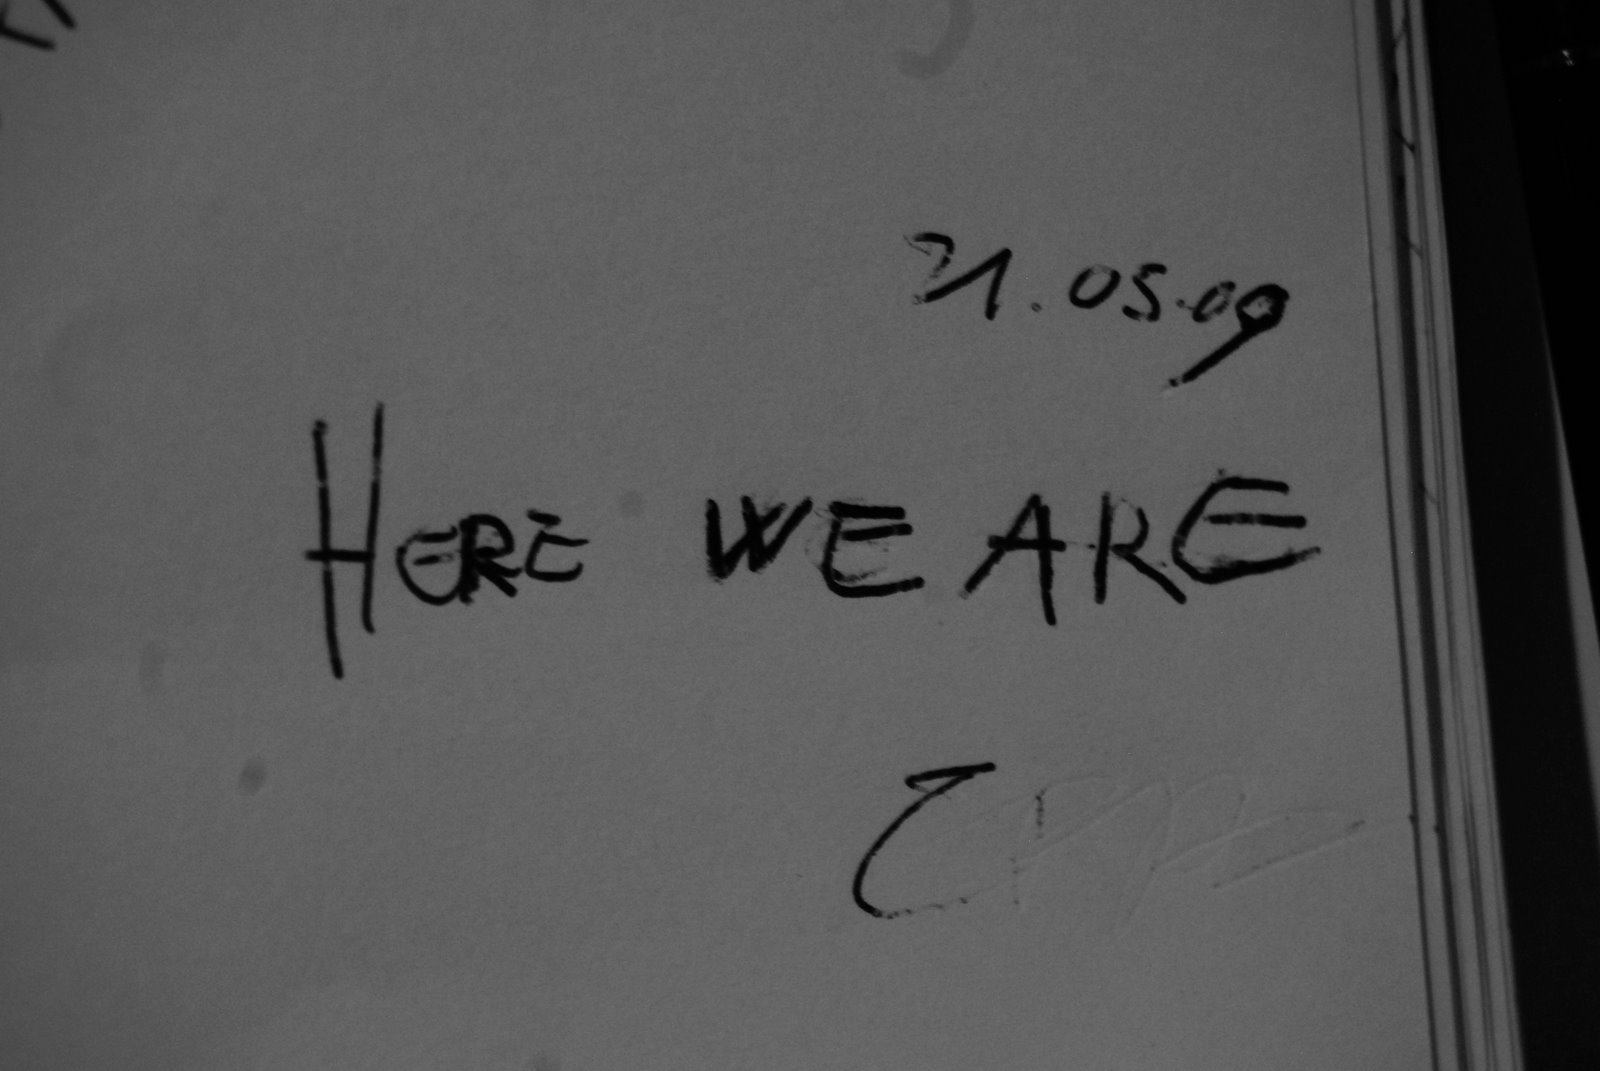 21.05.09
HERE WE ARE